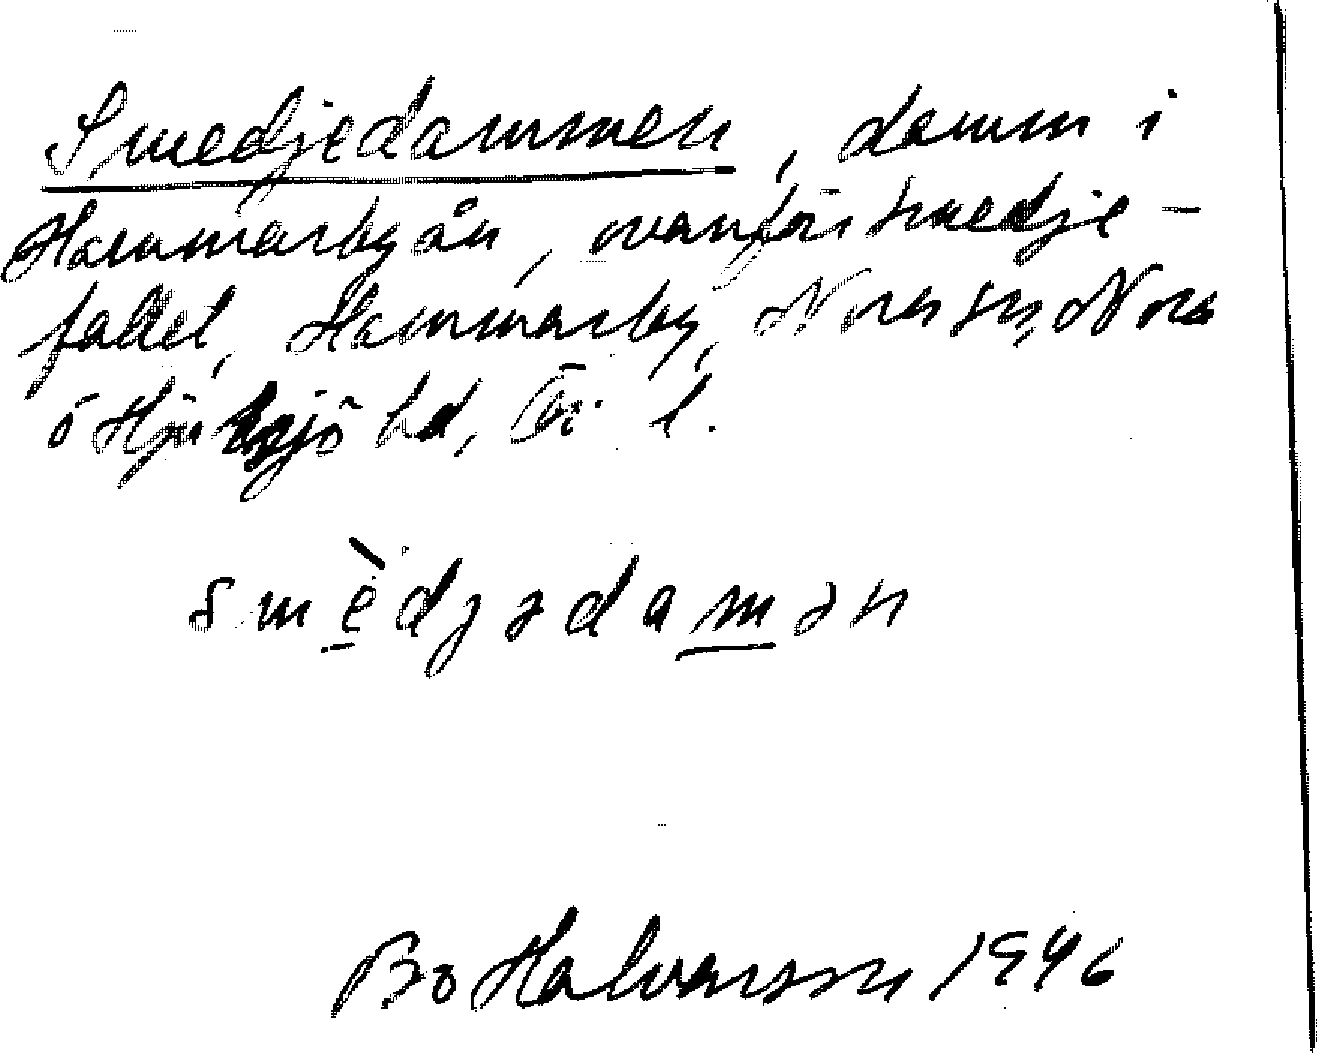 Smedjedammen, damm i
Hammarbyån, ovanför Smedje-
fallet, Hammarby, Nora sn, Nora
o Hjulsjö hd, Ör. l.
smèdjədamən
Bo Halvarsson 1946